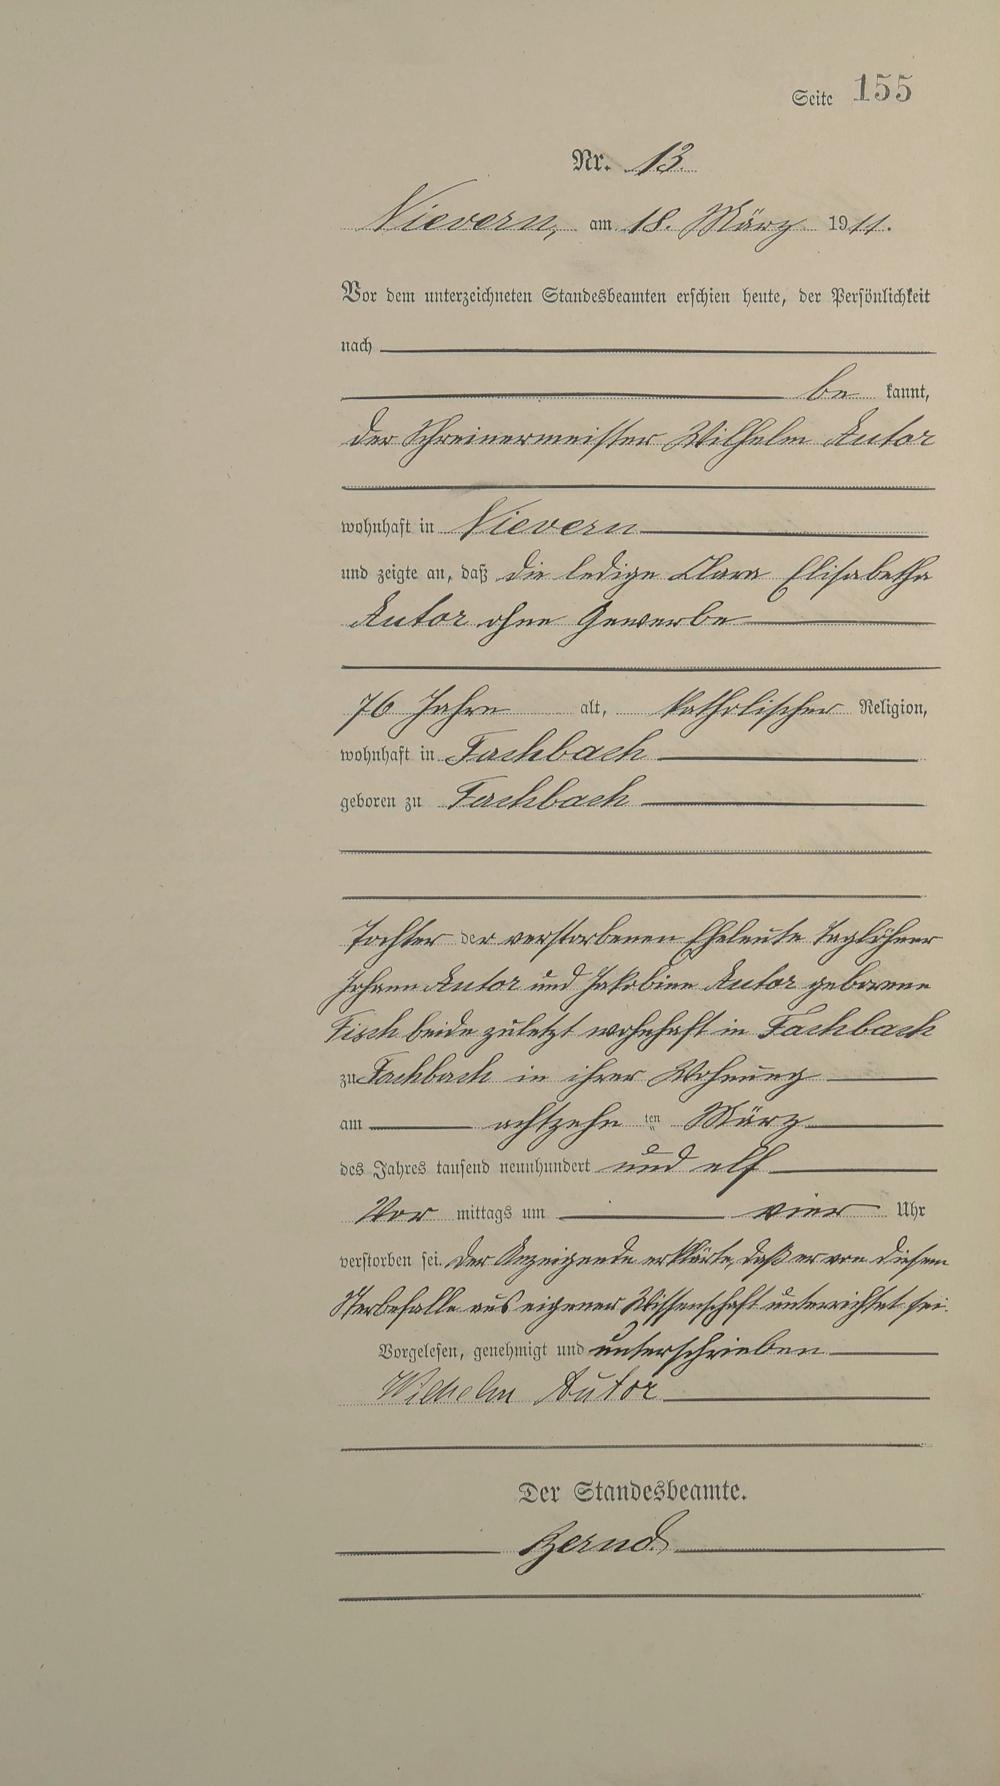 Seite 155
Nr. 13.
Nievern, am 18. März 1911.
Vor dem unterzeichneten Standesbeamten erschien heute, der Persönlichkeit
nach
be kannt,
der Schreinermeister Wilhelm Autor
wohnhaft in Nievern
und zeigte an, daß die ledige Clara Elisabetha
Autor ohne Gewerbe
76 Jahre alt, katholischer Religion,
wohnhaft in Fachbach
geboren zu Fachbach
Tochter der verstorbenen Eheleute Taglöhner
Johann Autor und Jakobine Autor geborene
Fisch beide zuletzt wohnhaft in Fachbach
zu Fachbach in ihrer Wohnung
am achtzehn ten März
des Jahres tausend neunhundert und elf
Vor mittags um vier Uhr
verstorben sei. Der Anzeigende erklärte, daß er von diesem
Sterbefalle aus eigener Wissenschaft unterrichtet sei.
Vorgelesen, genehmigt und unterschrieben
Wilhelm Autor
Der Standesbeamte.
Bernd